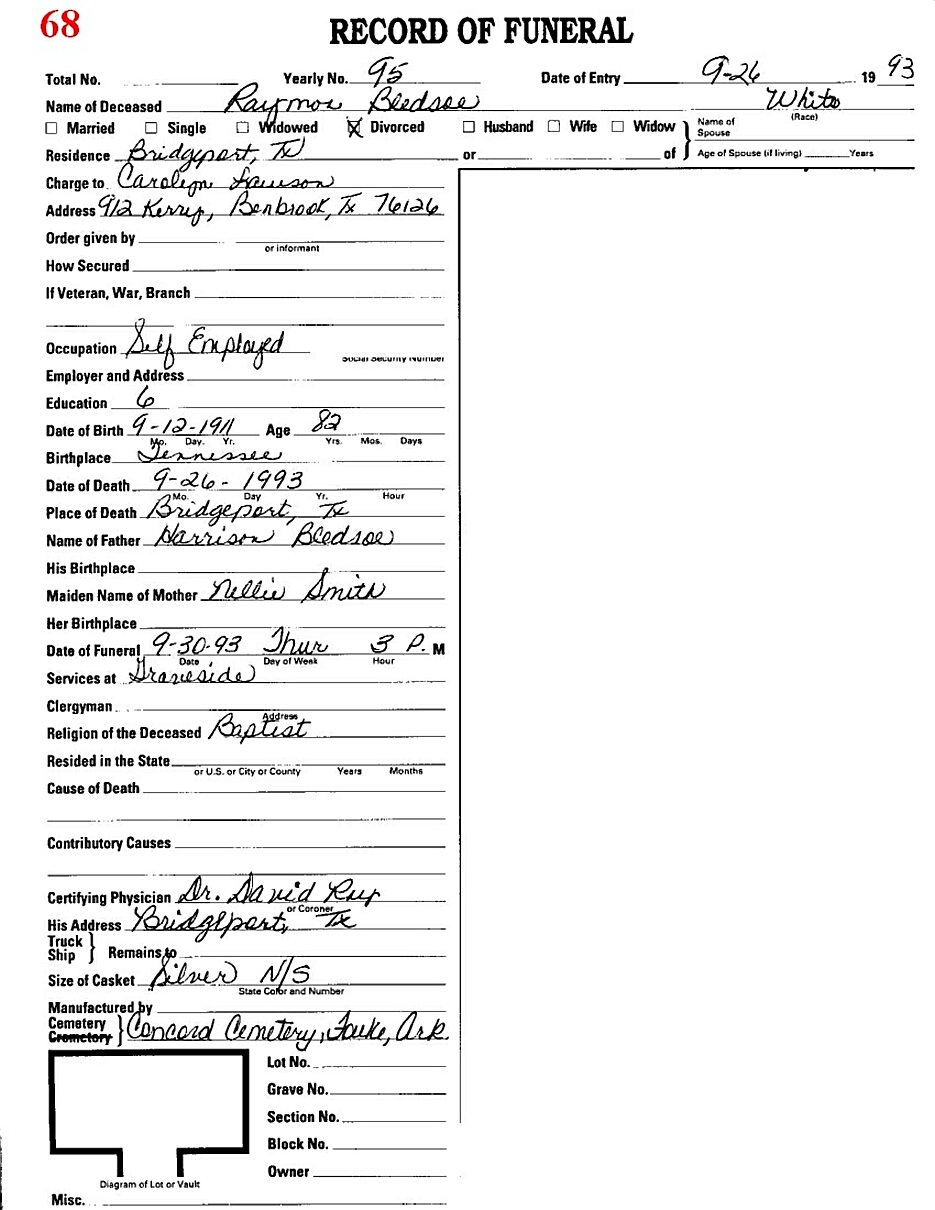 68
RECORD OF FUNERAL
Total No. Yearly No. 95 Date of Entry 9-26 19 93
Name of Deceased Raymon Bledsoe White
(Race)
☐ Married ☐ Single ☐ Widowed ☒ Divorced ☐ Husband ☐ Wife ☐ Widow } Name of Spouse
Residence Bridgeport, Tx or of Age of Spouse (if living) Years
Charge to Carolyn Lawson
Address 912 Kerry, Benbrook, Tx 76126
Order given by
or informant
How Secured
If Veteran, War, Branch
Occupation Self Employed
Social Security Number
Employer and Address
Education 6
Date of Birth 9-12-1911 Age 82
Mo. Day. Yr. Yrs. Mos. Days
Birthplace Tennessee
Date of Death 9-26-1993
Mo. Day Yr. Hour
Place of Death Bridgeport, Tx
Name of Father Harrison Bledsoe
His Birthplace
Maiden Name of Mother Nellie Smith
Her Birthplace
Date of Funeral 9-30-93 Thur 3 P. M
Date Day of Week Hour
Services at Graveside
Clergyman
Address
Religion of the Deceased Baptist
Resided in the State
or U.S. or City or County Years Months
Cause of Death
Contributory Causes
Certifying Physician Dr. David
or Coroner
His Address Bridgeport, Tx
Truck
Ship } Remains to
Size of Casket Silver N/S
State Color and Number
Manufactured by
Cemetery
Crematory } Concord Cemetery, Fouke, Ark.
Lot No.
Grave No.
Section No.
Block No.
Owner
Diagram of Lot or Vault
Misc.